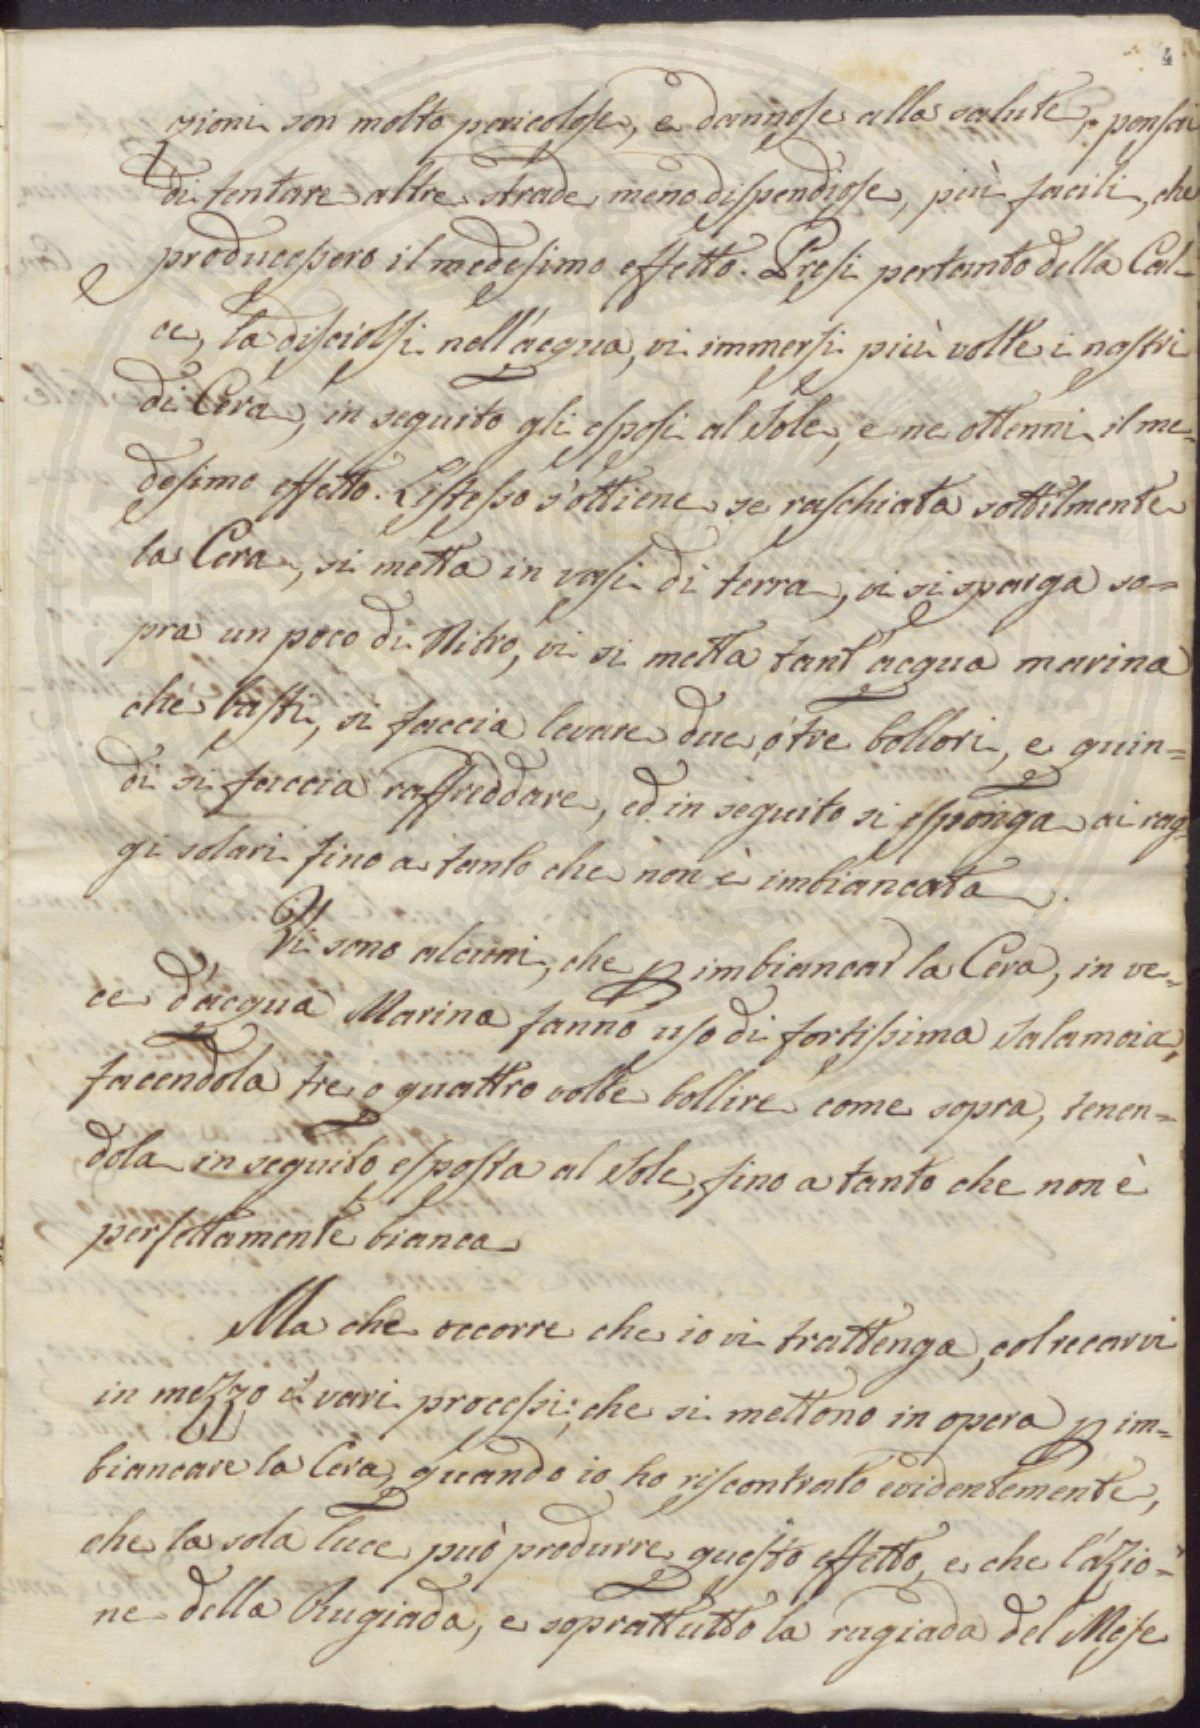 4
zioni son molto pericolose, e dannose alla salute, pensai
di tentare altre strade meno dispendiose, più facili, che
producessero il medesimo effetto. Presi pertanto della Cal-
ce, la disciolsi nell'acqua, vi immersi più volte i nastri
di Cera, in seguito gli esposi al Sole, e ne ottenni il me-
desimo effetto. L'istesso s'ottiene se raschiata sottilmente
la Cera, si metta in vasi di terra, vi si sparga so=
pra un poco di Nitro, vi si metta tant'acqua marina
che basti, si faccia levare due, o tre bollori, e quin=
di si faccia raffreddare, ed in seguito si esponga ai rag=
gi solari fino a tanto che non è imbiancata.
Vi sono alcuni, che p imbiancar la Cera, in ve=
ce d'acqua Marina fanno uso di fortissima Salamoia,
facendola tre o quattro volte bollire come sopra, tenen=
dola in seguito esposta al Sole, fino a tanto che non è
perfettamente bianca
Ma che occorre che io vi trattenga, col recarvi
in mezzo i vari processi, che si mettono in opera p im=
biancare la Cera, quando io ho riscontrato evidentemente,
che la sola luce può produrre questo effetto, e che l'azio=
ne della Rugiada, e soprattutto la rugiada del Mese